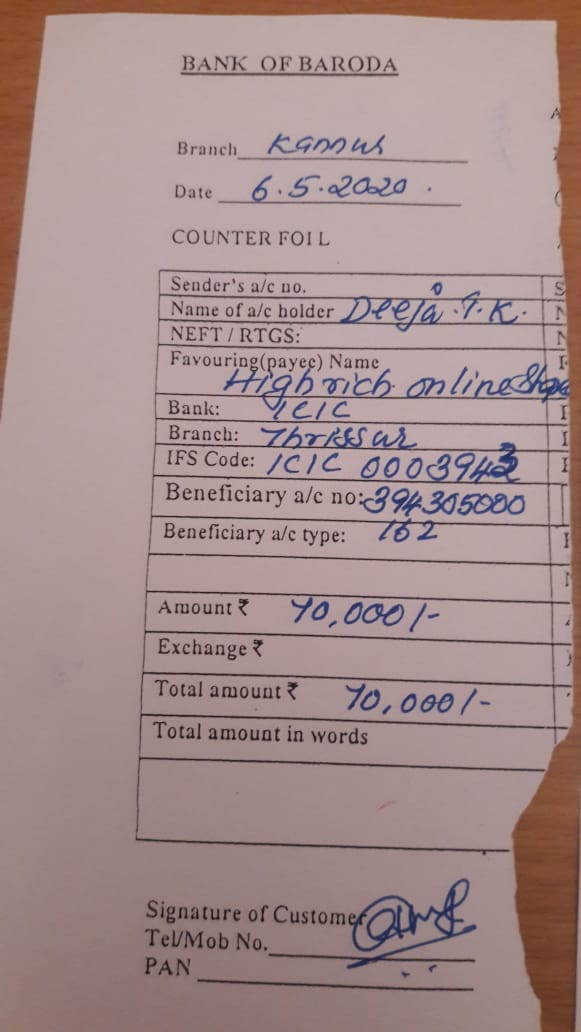 BANK OF BARODA
Branch Kannur
Date 6.5.2020.
COUNTER FOIL
Sender's a/c no.
Name of a/c holder Deeja.T.K.
NEFT / RTGS:
Favouring(payee) Name
Highrich online Shope
Bank: ICIC
Branch: Thrissur
IFS Code: ICIC 0003943
Beneficiary a/c no: 394305000
Beneficiary a/c type: 162
Amount ₹ 70,000/-
Exchange ₹
Total amount ₹ 70,000/-
Total amount in words
Signature of Customer
Tel/Mob No.
PAN